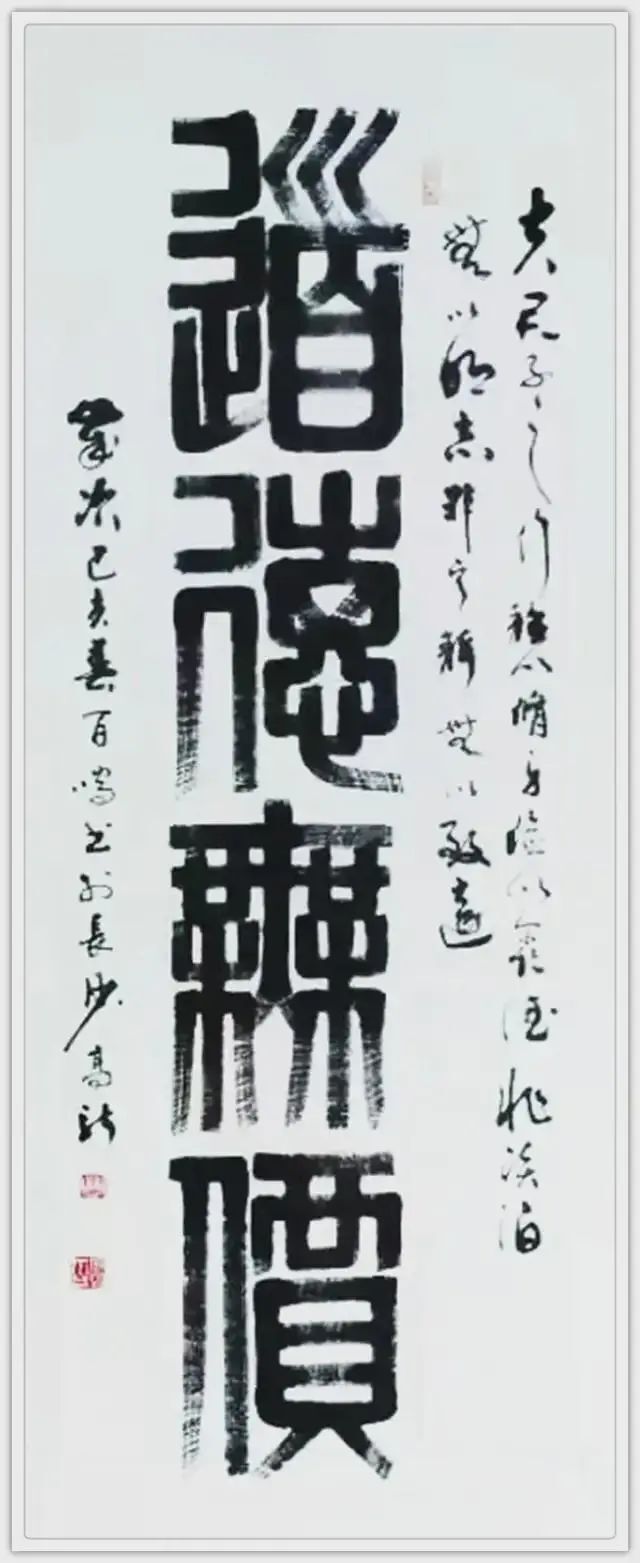 夫君子之行静以脩身儉以養德非淡泊
無以明志非寧静無以致遠
道德無價
歲次己亥春百鳴书於長沙高新